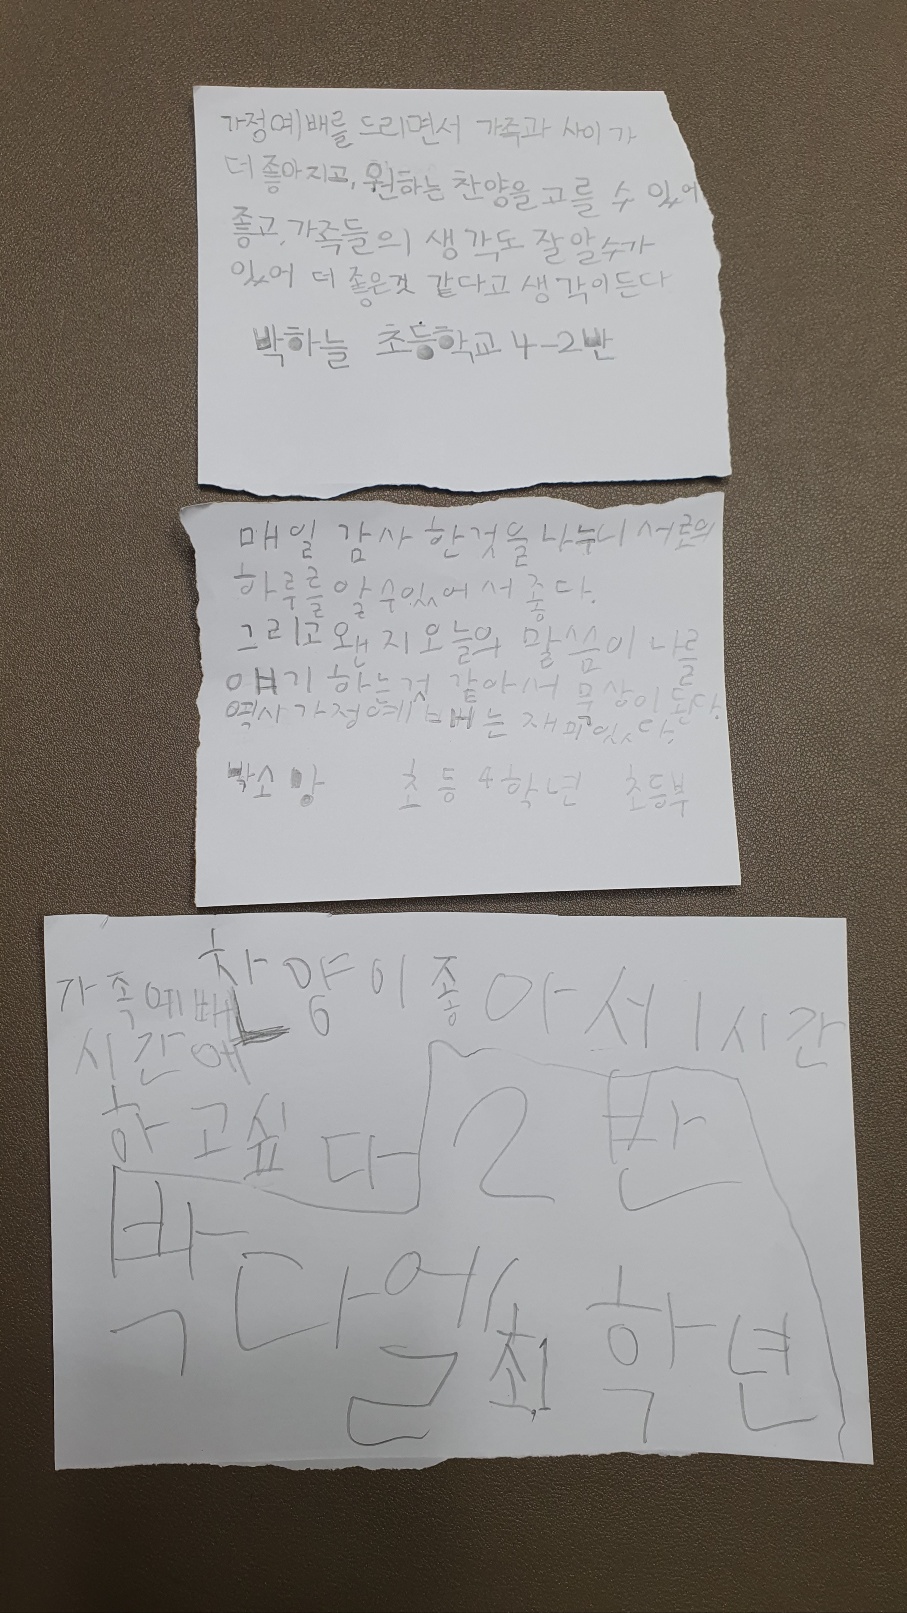 가정예배를 드리면서 가족과 사이가
더 좋아지고, 원하는 찬양을 고를 수 있어
좋고, 가족들의 생각도 잘 알수가
있어 더 좋은것 같다고 생각이든다
박하늘 초등학교 4-2반
매일 감사 한것을 나누니 서로의
하루를 알 수있어서 좋다.
그리고 왠지 오늘의 말씀이 나를
얘기 하는것 같아서 묵상이 된다.
역시 가정예배는 재미있다.
박소망 초등4학년 초등부
가족예배 찬양이좋아서 1시간
시간에
하고싶다 2반
박다엘 초1 학년